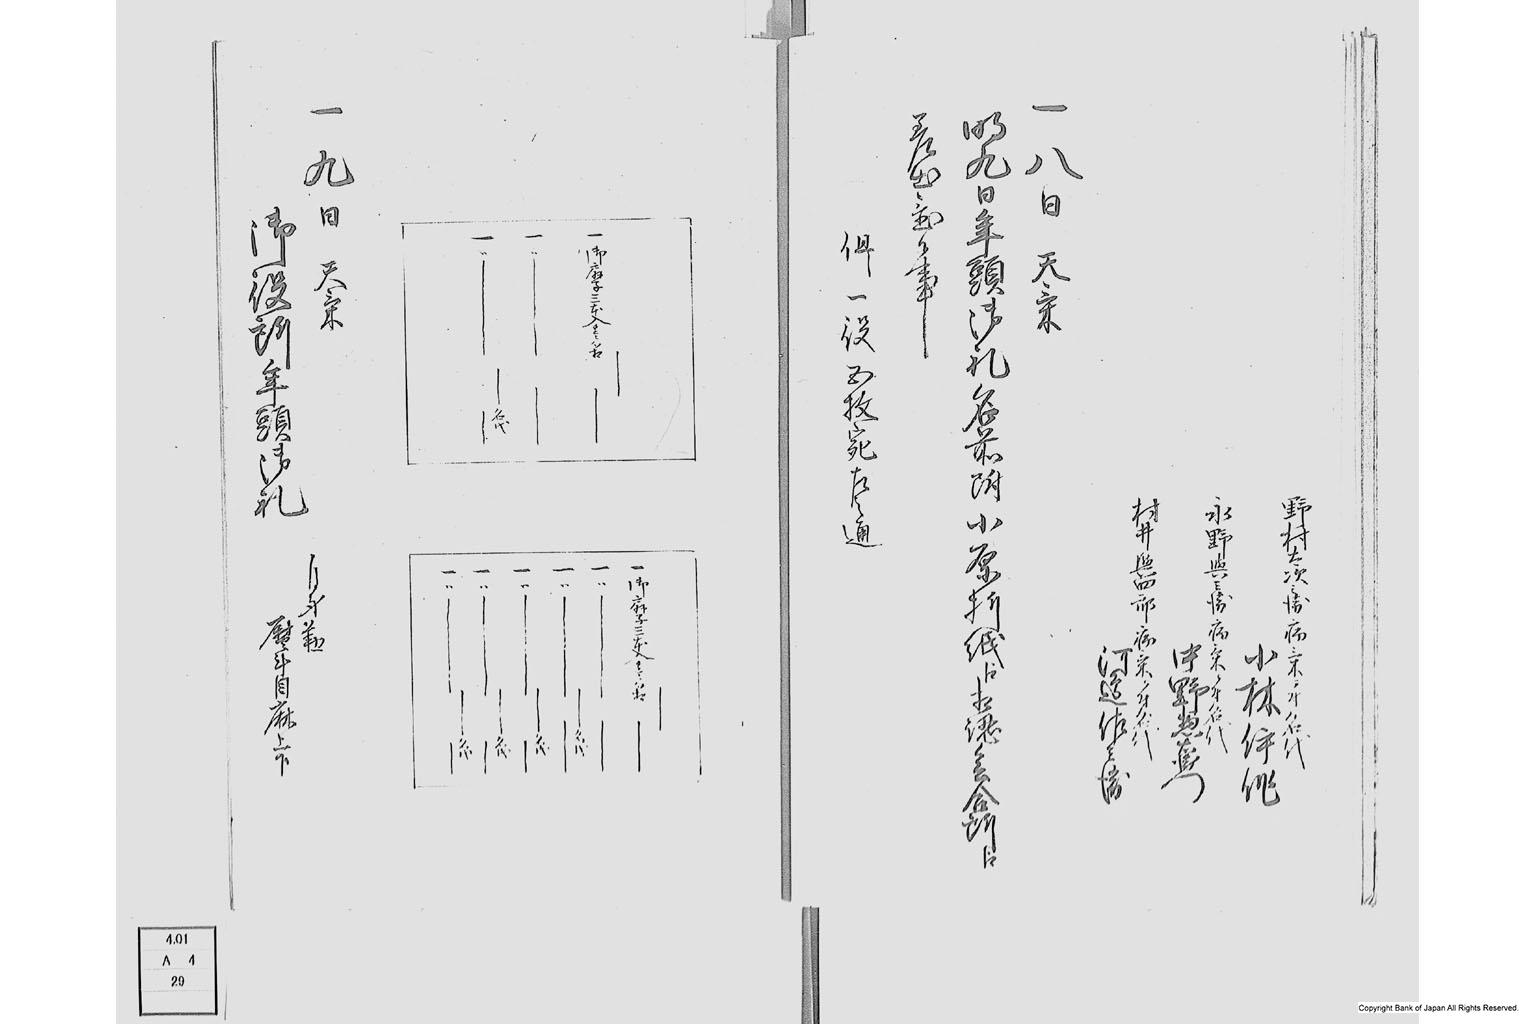 野村太次兵衛病気ニ付名代
小林伴
永野与兵衛病気ニ付名代
中野
村井与四郎病気ニ付名代
河辺佐兵衛
一八日 天気
明九日年頭御礼名前附小原折紙ニ相認会合所ニ
差出
但一役五枚宛左之通
一御扇子三本入壱箱
一〃
一〃 名代
一御扇子三本入壱箱
一〃
一〃 名代
一〃 名代
一〃 名代
一〃 名代
一九日 天気
御役所年頭御礼
自身勤
熨斗目麻上下
4.01
A 4
29
Copyright Bank of Japan All Rights Reserved.